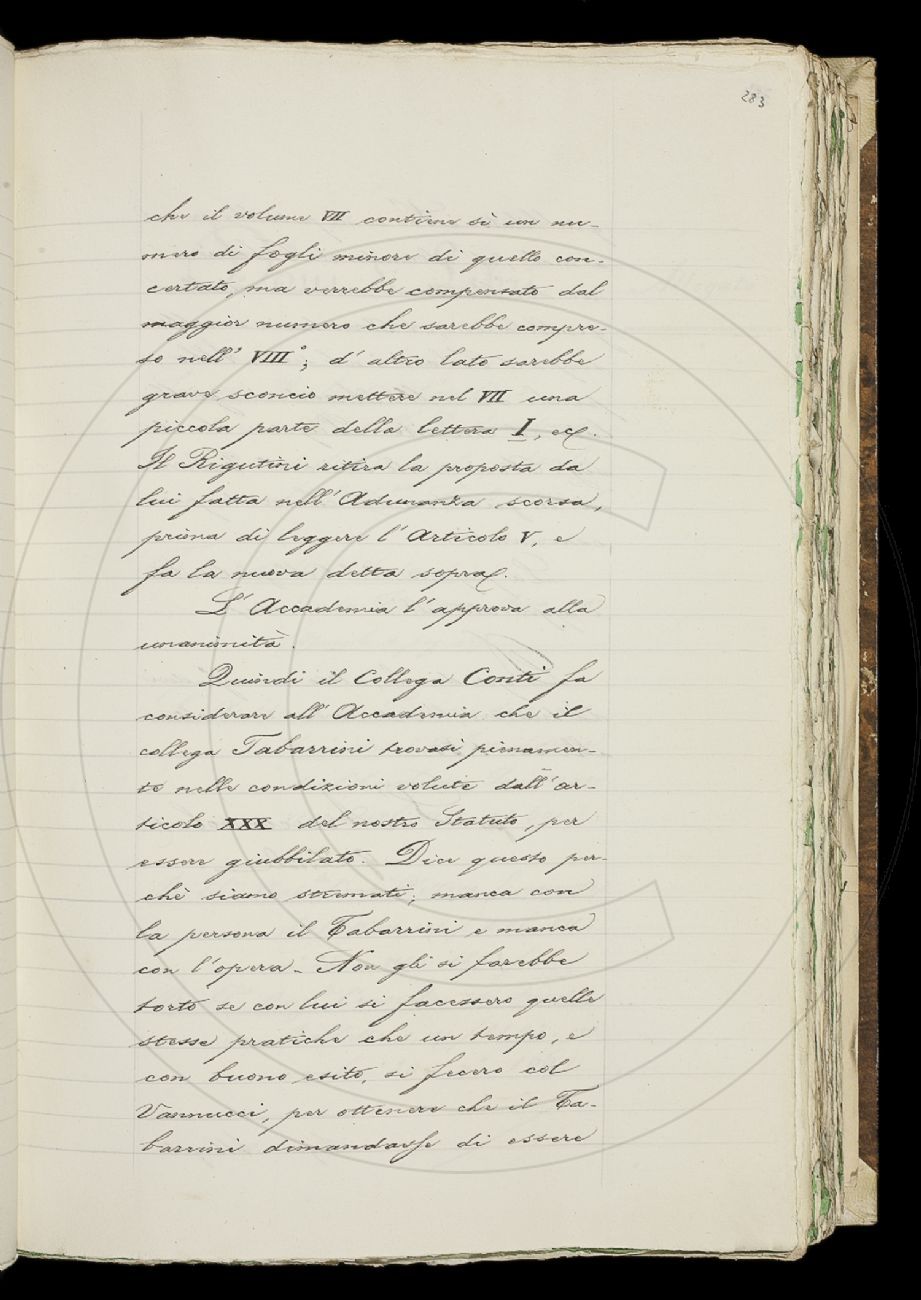 283
che il volume VII contiene sì un nu-
mero di fogli minore di quello con-
certato, ma verrebbe compensato dal
maggior numero che sarebbe compre-
so nell' VIII°; d'altro lato sarebbe
grave sconcio mettere nel VII una
piccola parte della lettera I, ec.
Il Rigutini ritira la proposta da
lui fatta nell'Adunanza scorsa,
prima di leggere l'Articolo V, e
fa la nuova detta sopra.
L'Accademia l'approva alla
unanimità.
Quindi il Collega Conti fa
considerare all'Accademia che il
collega Tabarrini trovasi pienamen-
te nelle condizioni volute dall'ar-
ticolo XXX del nostro Statuto, per
essere giubbilato. Dice questo per-
chè siamo stremati; manca con
la persona il Tabarrini e manca
con l'opera. Non gli si farebbe
torto se con lui si facessero quelle
stesse pratiche che un tempo, e
con buono esito, si fecero col
Vannucci, per ottenere che il Ta-
barrini dimandasse di essere